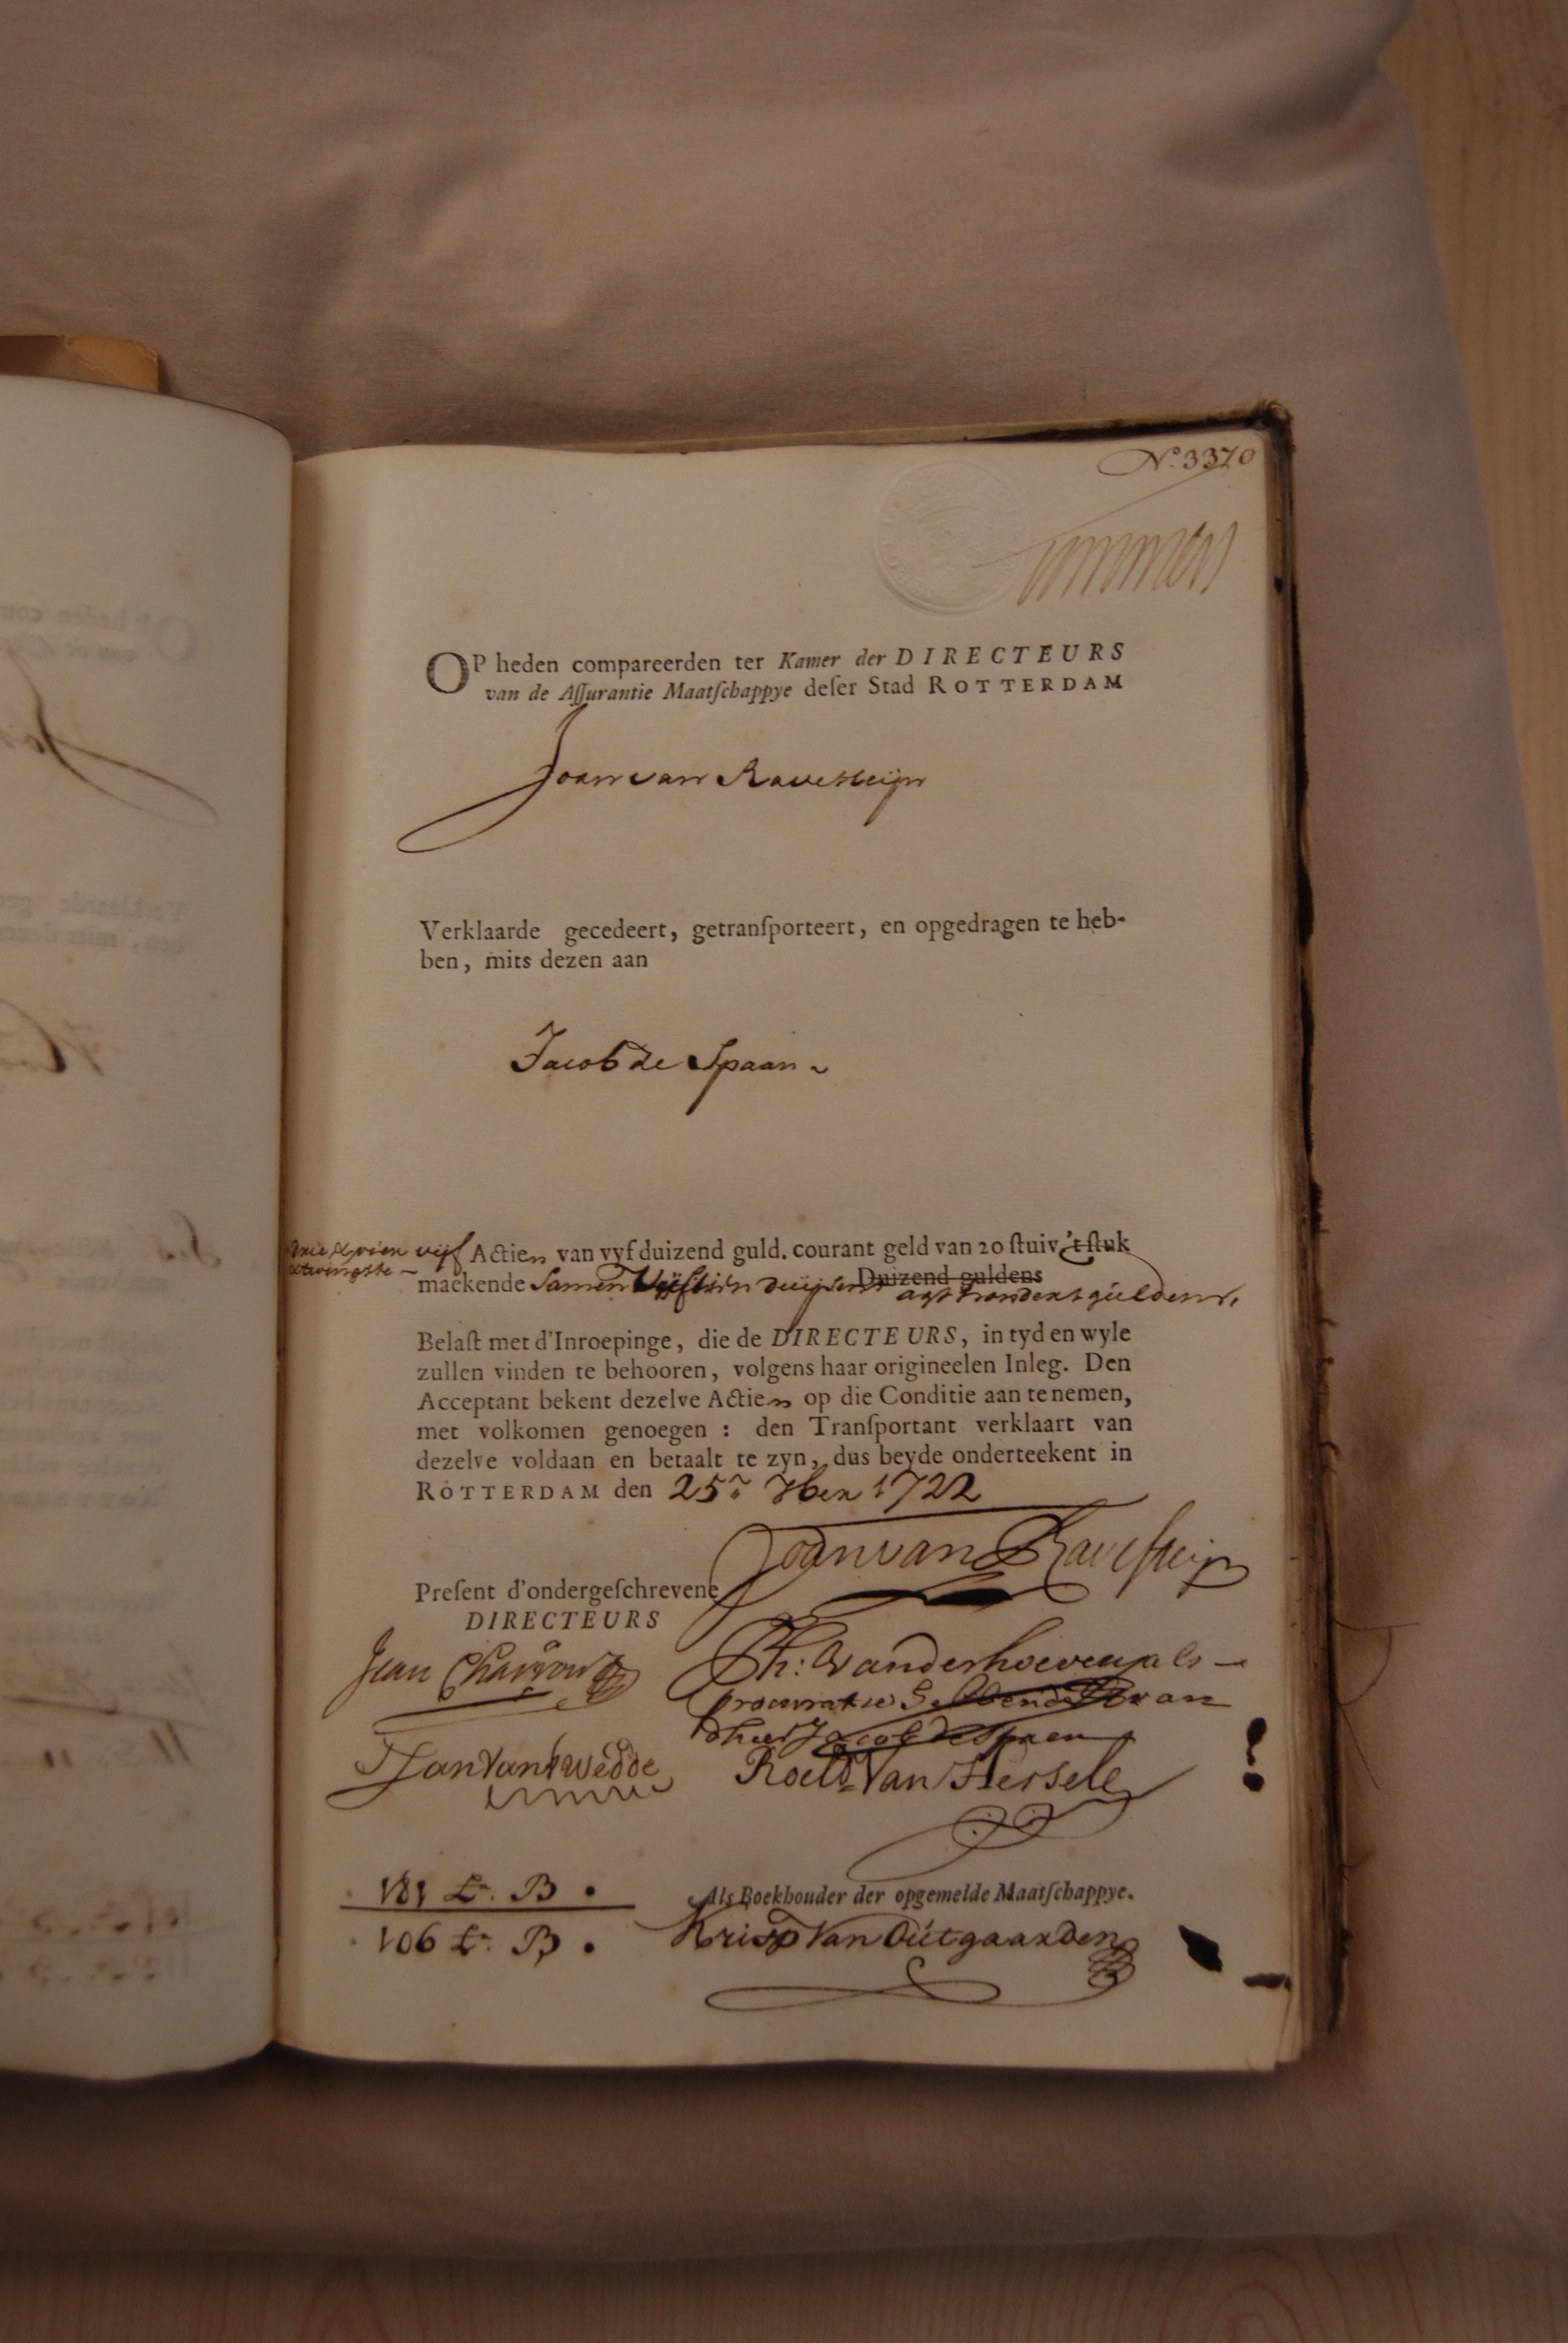 N.º 3370
OP heden compareerden ter Kamer der DIRECTEURS
van de Aſſurantie Maatſchappye deſer Stad ROTTERDAM
Joan van Ravesteijn
Verklaarde gecedeert, getranſporteert, en opgedragen te heb-
ben, mits dezen aan
Jacob de Spaan
Drie & vier vijf Actien van vyf duizend guld. courant geld van 20 ſtuiv. 't ſtuk
maekende Samen Vijftien duijsent Duizend guldens agt hondert guldens,
Belaſt met d'Inroepinge, die de DIRECTEURS, in tyd en wyle
zullen vinden te behooren, volgens haar origineelen Inleg. Den
Acceptant bekent dezelve Actien op die Conditie aan te nemen,
met volkomen genoegen : den Tranſportant verklaart van
dezelve voldaan en betaalt te zyn, dus beyde onderteekent in
ROTTERDAM den 25 7ber 1722
Joan van Ravesteijn
Preſent d'ondergeſchrevene
DIRECTEURS
Jean
Ph: Vanderhoeven als
procuratie van
dheer Jacob de Spaen
Jan Van
Roelt Van Hersele
181 Lr. B.
Als Boekhouder der opgemelde Maatſchappye.
106 Lr. B.
Krisp Van Outgaarden